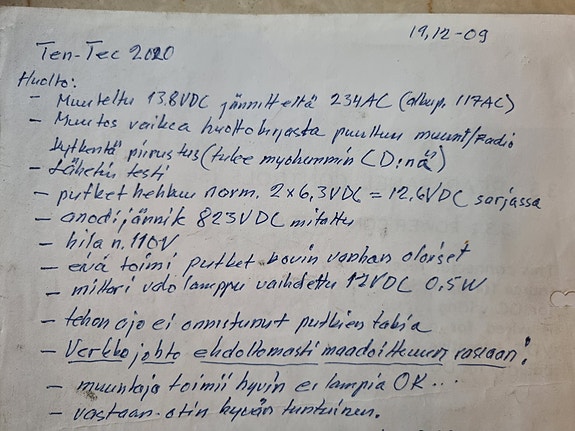 19,12-09
Ten-Tec 2020
Huolto:
- Muuteltu 13.8VDC jännitteltä 234AC (alkup. 117AC)
- Muutos vaikea huoltokirjasta puuttuu muunt/radio
kytkentä piirustus (tulee myöhemmin CD:nä")
- Lähetin testi
- putket hehkuu norm. 2x6,3VDC = 12,6VDC sarjassa
- anodijännik 823VDC mitattu
- hila n. 110V
- eivä toimi putket kovin vanhan oloiset
- mittari valo lamppu vaihdettu 12VDC 0,5W
- tehon ajo ei onnistunut putkien takia
- Verkkojohto ehdottomasti maadoittuun rasiaan!
- muuntaja toimii hyvin ei lämpiä OK...
- vastaan.otin hyvän tuntuinen.